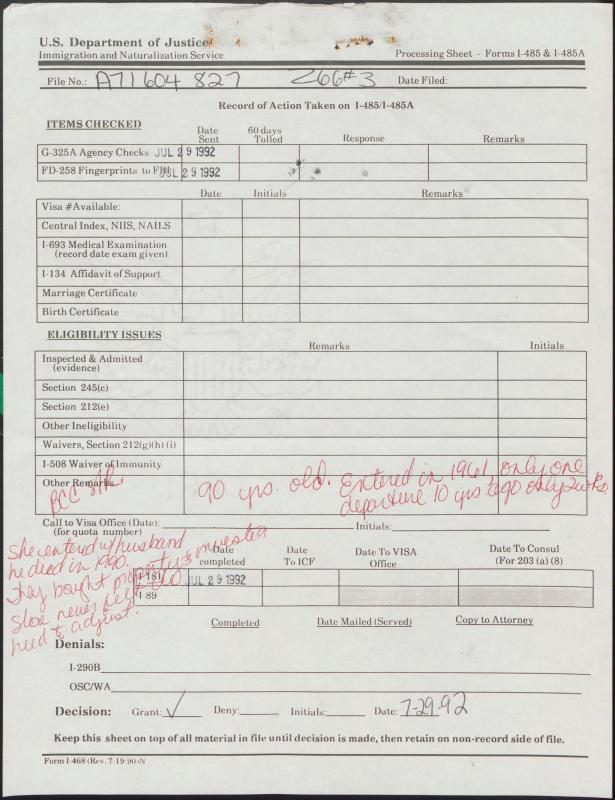 U.S. Department of Justice
Immigration and Naturalization Service
Processing Sheet - Forms I-485 & I-485A
File No.: A71 604 827 266#3 Date Filed:
Record of Action Taken on I-485/I-485A
ITEMS CHECKED
Date Sent 60 days Tolled Response Remarks
G-325A Agency Checks JUL 29 1992
FD-258 Fingerprints to FBI JUL 29 1992
Date Initials Remarks
Visa #Available:
Central Index, NIIS, NAILS
I-693 Medical Examination
(record date exam given)
I-134 Affidavit of Support
Marriage Certificate
Birth Certificate
ELIGIBILITY ISSUES
Remarks Initials
Inspected & Admitted
(evidence)
Section 245(c)
Section 212(e)
Other Ineligibility
Waivers, Section 212(g)(h)(i)
I-508 Waiver of Immunity
Other Remarks
BCC
90 yrs. old. Entered in 1961 only one
departure 10 yrs. ago only 2 wks
Call to Visa Office (Date): Initials:
(for quota number)
She entered w/husband
he died in 1990.
They bought property & invested
She never felt the
need to adjust.
Date completed Date To ICF Date To VISA Office Date To Consul (For 203 (a) (8)
I-181 JUL 29 1992
I-89
Completed Date Mailed (Served) Copy to Attorney
Denials:
I-290B
OSC/WA
Decision: Grant: ✓ Deny: Initials: Date: 7-29-92
Keep this sheet on top of all material in file until decision is made, then retain on non-record side of file.
Form I-468 (Rev. 7-19-90)N